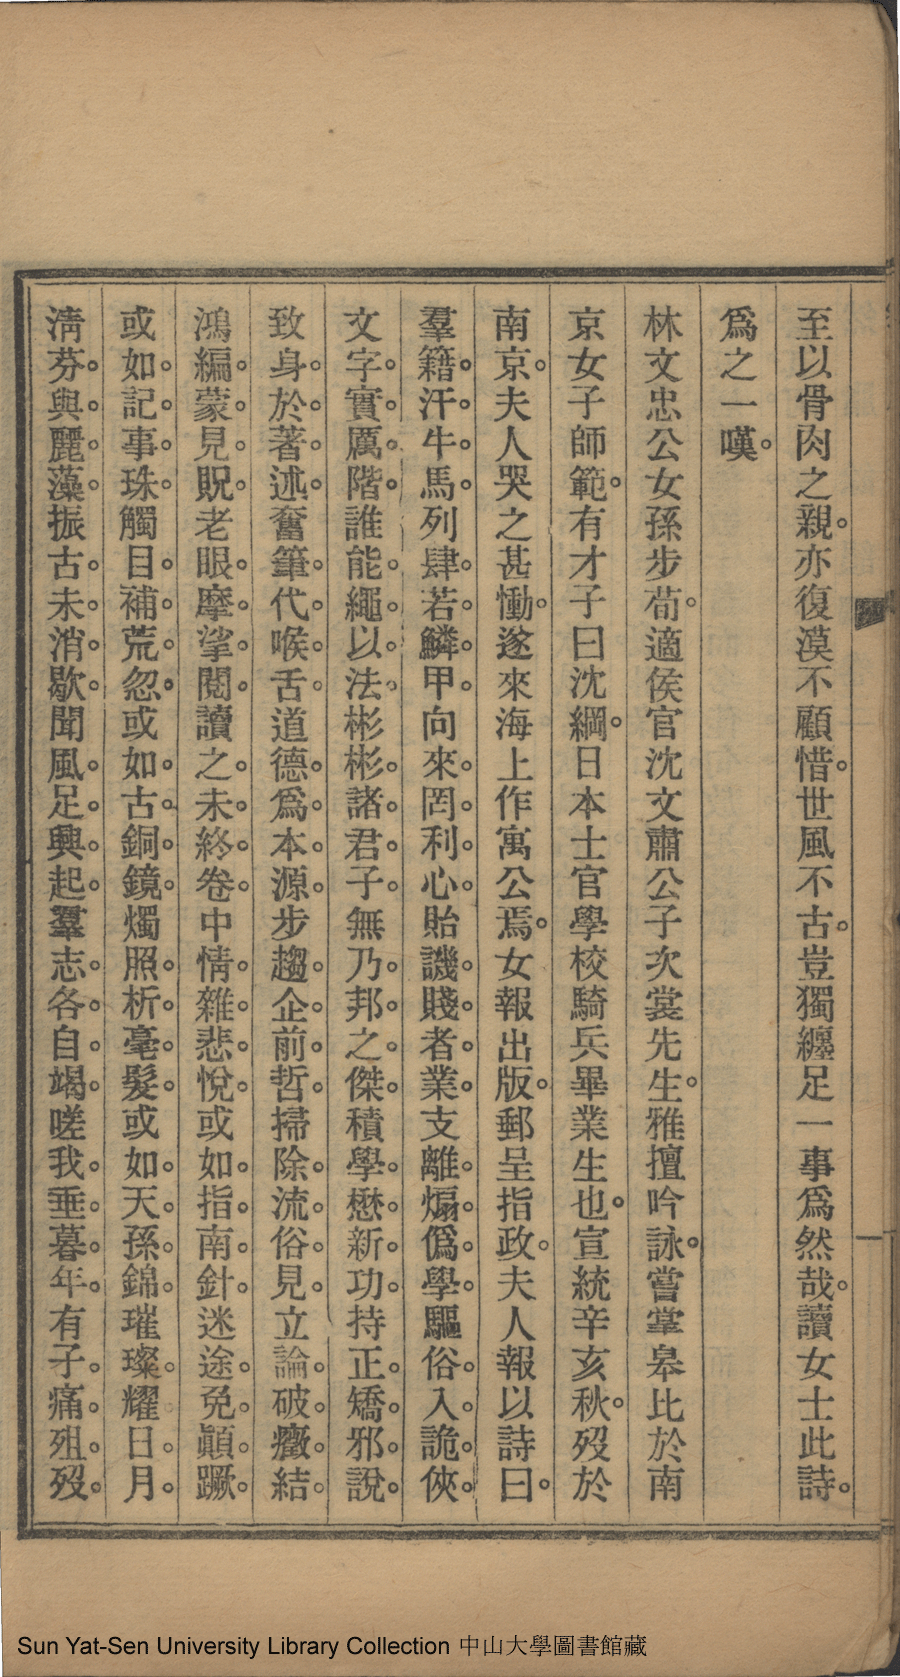 至以骨肉之親。亦復漠不顧惜。世風不古。豈獨纏足一事爲然哉。讀女士此詩。
爲之一嘆。
林文忠公女孫步荀。適侯官沈文肅公子次裳先生。雅擅吟詠。嘗掌皋比於南
京女子師範。有才子曰沈綱。日本士官學校騎兵畢業生也。宣統辛亥秋。歿於
南京。夫人哭之甚慟。遂來海上作寓公焉。女報出版。郵呈指政。夫人報以詩曰。
羣籍汗牛馬。列肆若鱗甲。向來罔利心。貽譏賤者業。支離煽僞學。驅俗入詭俠。
文字實厲階。誰能繩以法。彬彬諸君子。無乃邦之傑。積學懋新功。持正矯邪說。
致身於著述。奮筆代喉舌。道德爲本源。步趨企前哲。掃除流俗見。立論破癥結。
鴻編蒙見貺。老眼摩挲閱。讀之未終卷。中情雜悲悅。或如指南針。迷途免顚蹶。
或如記事珠。觸目補荒忽。或如古銅鏡。燭照析毫髮。或如天孫錦。璀璨耀日月。
淸芬與麗藻。振古未消歇。聞風足興起。羣志各自竭。嗟我垂暮年。有子痛殂歿。
Sun Yat-Sen University Library Collection 中山大學圖書館藏